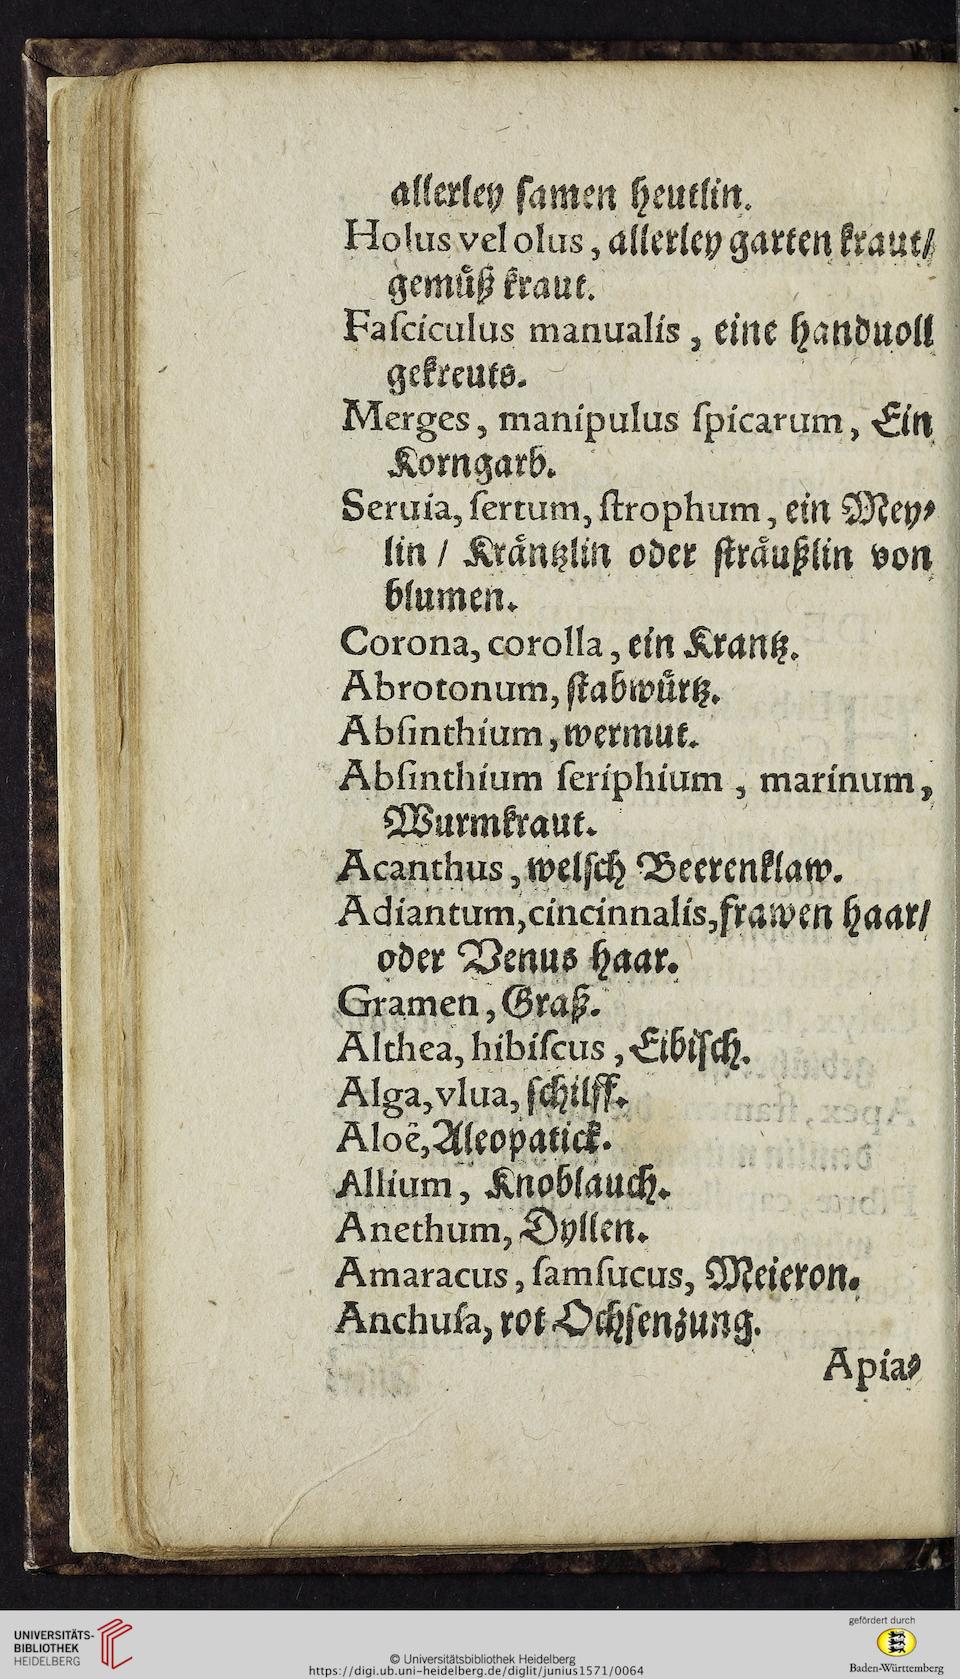 allerley ſamen heutlin.
Holus vel olus, allerley garten kraut/
gemuͤß kraut.
Faſciculus manualis, eine handuoll
gekreuts.
Merges, manipulus ſpicarum, Ein
Korngarb.
Seruia, ſertum, ſtrophum, ein Mey⸗
lin / Kraͤntzlin oder ſtraͤußlin von
blumen.
Corona, corolla, ein Krantz.
Abrotonum, ſtabwuͤrtz.
Abſinthium, wermut.
Abſinthium ſeriphium, marinum,
Wurmkraut.
Acanthus, welſch Beerenklaw.
Adiantum, cincinnalis, frawen haar/
oder Venus haar.
Gramen, Graß.
Althea, hibiſcus, Eibiſch.
Alga, vlua, ſchilff.
Aloë, Aleopatick.
Allium, Knoblauch.
Anethum, Dyllen.
Amaracus, ſamſucus, Meieron.
Anchuſa, rot Ochſenzung.
Apia⸗
UNIVERSITÄTS-
BIBLIOTHEK
HEIDELBERG
© Universitätsbibliothek Heidelberg
https://digi.ub.uni-heidelberg.de/diglit/junius1571/0064
gefördert durch
Baden-Württemberg